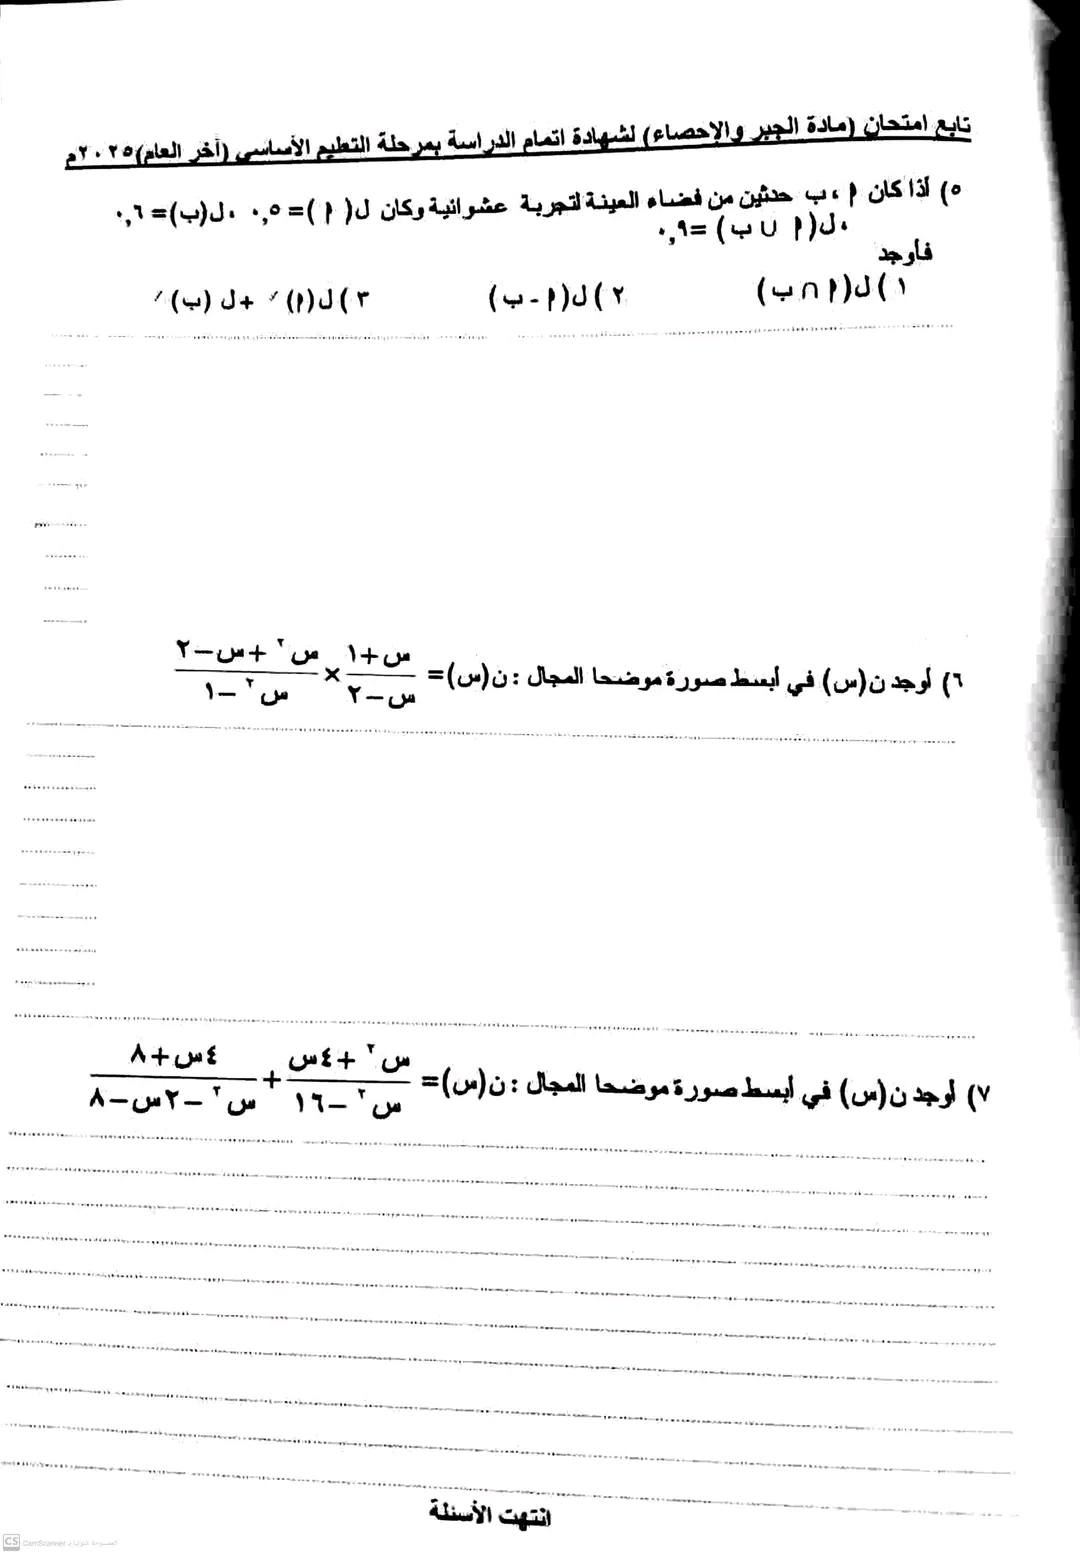 تابع امتحان (مادة الجبر والإحصاء) لشهادة اتمام الدراسة بمرحلة التعليم الأساسي (آخر العام) ٢٠٢٥م
٥) أذا كان أ ، ب حدثين من فضاء العينة لتجربة عشوانية وكان ل( أ )= ٠,٥ ، ل(ب)= ٠,٦
، ل(أ ∪ ب) =٠,٩
فأوجد
١ ) ل(أ ∩ ب) ٢ ) ل(أ - ب) ٣ ) ل(أ)َ + ل (ب)َ
٦) أوجد ن(س) في أبسط صورة موضحا المجال : ن(س)= (س+١)/(س−٢) × (س٢ +س−٢)/(س٢ −١)
٧) أوجد ن(س) في أبسط صورة موضحا المجال : ن(س)= (س٢ +٤س)/(س٢ −١٦) + (٤س+٨)/(س٢ −٢س−٨)
انتهت الأسئلة
CS CamScanner